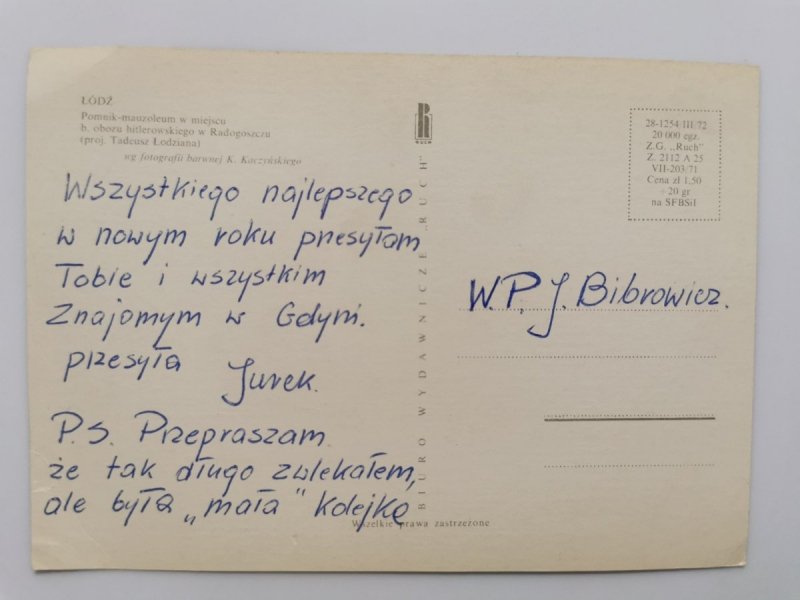 ŁÓDŹ
Pomnik-mauzoleum w miejscu
b. obozu hitlerowskiego w Radogoszczu
(proj. Tadeusz Łodziana)
wg fotografii barwnej K. Kaczyńskiego
Wszystkiego najlepszego
w nowym roku przesyłam
Tobie i wszystkim
Znajomym w Gdyni.
przesyła Jurek.
P.S. Przepraszam
że tak długo zwlekałem,
ale była „mała" kolejka
RUCH
BIURO WYDAWNICZE „RUCH"
Wszelkie prawa zastrzeżone
28-1254/III/72
20 000 egz.
Z.G. „Ruch"
Z. 2112 A 25
VII-203/71
Cena zł 1,50
+ 20 gr
na SFBSiI
W.P. J. Bibrowicz.